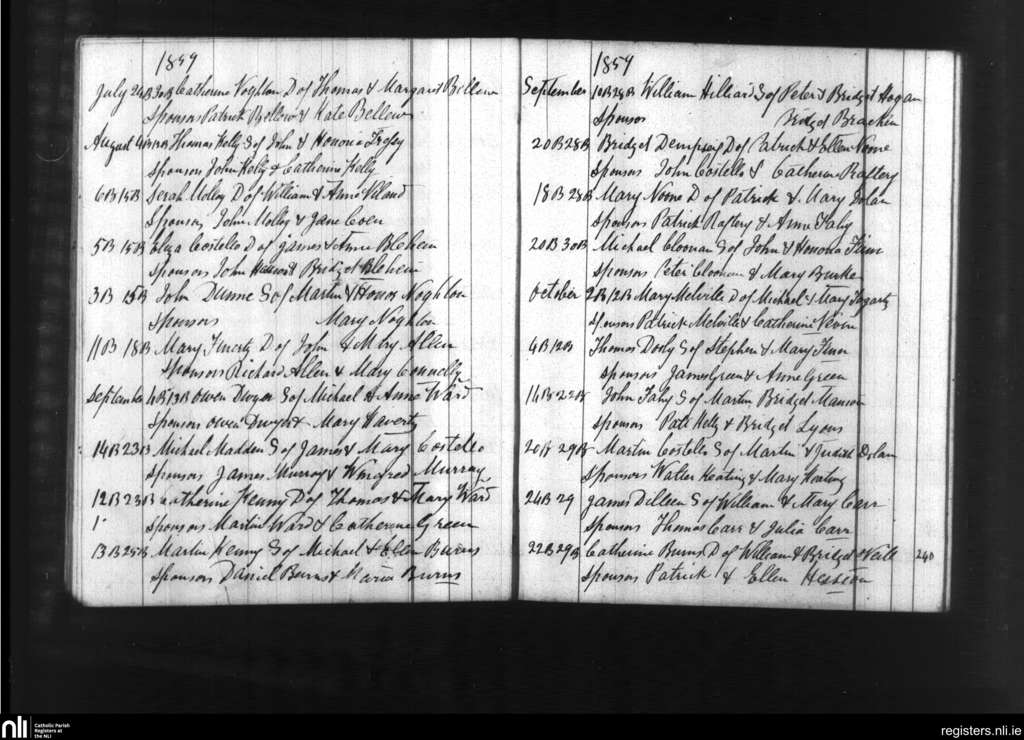 1859
July 24B 30B Catherine Noghton D of Thomas & Margaret Bellew
Sponsors Patrick Bellew & Kate Bellew
August 4B Thomas Kelly S of John & Honoria
Sponsors John Kelly & Catherine Kelly
6B 15B Serah D of William & Anne
Sponsors John & Jane Coen
5B 15B Eliza Costello D of James & Anne Blehein
Sponsors John & Bridget Blehein
3B 15B John Dunne S of Martin & Honor Noghton
Sponsors Mary Noghton
11B 18B Mary Finerty D of John & Mary Allen
Sponsors Richard Allen & Mary Connelly
September 4B 13B Owen Dwyer S of Michael & Anne Ward
Sponsors Owen Dwyer & Mary Haverty
14B 23B Michael Madden S of James & Mary Costello
Sponsors James Murray & Winifred Murray
12B 23B Catherine Kenny D of Thomas & Mary Ward
Sponsors Martin Ward & Catherine Green
13B 25B Martin Kenny S of Michael & Ellen Burns
Sponsors Daniel Burns & Maria Burns
1859
September 10B 28B William Hilliard S of Peter & Bridget Hogan
Sponsors Bridget Bracken
20B 28B Bridget Dempsey D of Patrick & Ellen Noone
Sponsors John Costello & Catherine Raftery
18B 28B Mary Noone D of Patrick & Mary Dolan
Sponsors Patrick Raftery & Anne Fahy
20B 30B Michael Cloonan S of John & Honoria Finn
Sponsors Peter Cloonan & Mary Burke
October 2B 12B Mary Melville D of Michael & Mary Fogarty
Sponsors Patrick Melville & Catherine
4B 12B Thomas S of Stephen & Mary Finn
Sponsors James Green & Anne Green
14B 22B John Fahy S of Martin Bridget Manson
Sponsors Patt Kelly & Bridget Lyons
20B 29B Martin Costello S of Martin & Judith Dolan
Sponsors Walter Keating & Mary Keating
24B 29 James Dilleen S of William & Mary Carr
Sponsors Thomas Carr & Julia Carr
22B 29B Catherine Burns D of William & Bridget Neill 240
Sponsors Patrick & Ellen Hession
nli Catholic Parish Registers at the NLI
registers.nli.ie